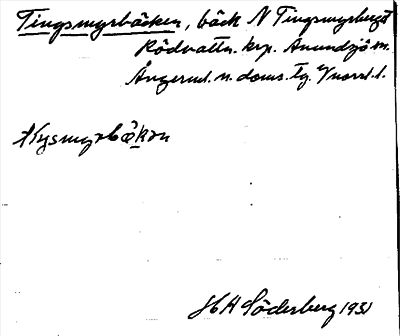 Tingsmyrbäcken, bäck N Tingsmyrberget
Rödvattn. krp. Anundsjö sn.
Ångerml. n. doms. tg. V.norrl. l.
HA Söderberg 1931